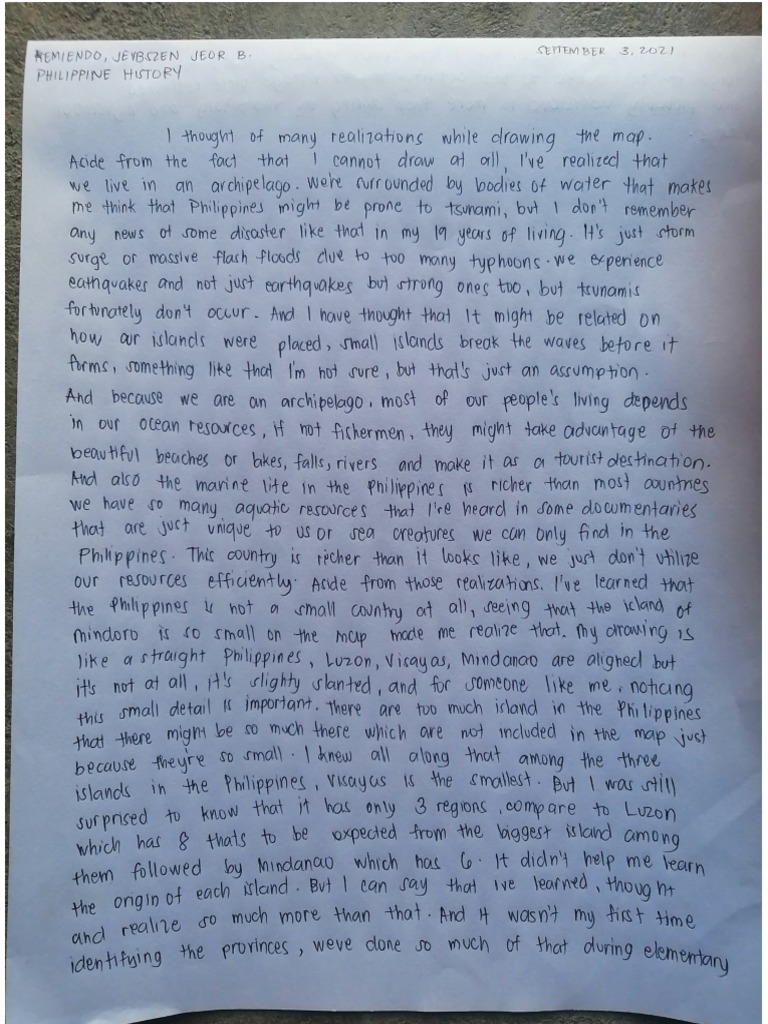 REMIENDO, JEYBSZEN JEOR B.
SEPTEMBER 3, 2021
PHILIPPINE HISTORY
I thought of many realizations while drawing the map.
Acide from the fact that I cannot draw at all, I've realized that
we live in an archipelago. We're surrounded by bodies of water that makes
me think that Philippines might be prone to tsunami, but I don't remember
any news of some disaster like that in my 19 years of living. It's just storm
surge or massive flash floods due to too many typhoons. we experience
eathquakes and not just earthquakes but strong ones too, but tsunamis
fortunately don't occur. And I have thought that It might be related on
how our islands were placed, small islands break the waves before it
forms, something like that I'm not sure, but that's just an assumption.
And because we are an archipelago, most of our people's living depends
in our ocean resources, if not fishermen, they might take advantage of the
beautiful beaches or lakes, falls, rivers and make it as a tourist destination.
And also the marine life in the Philippines is richer than most countries
we have so many aquatic resources that I've heard in some documentaries
that are just unique to us or sea creatures we can only find in the
Philippines. This country is richer than it looks like, we just don't utilize
our resources efficiently. Aside from those realizations. I've learned that
the Philippines is not a small country at all, seeing that the island of
mindoro is so small on the map made me realize that. My drawing is
like a straight Philippines, Luzon, Visayas, Mindanao are aligned but
it's not at all, it's slighty slanted, and for someone like me, noticing
this small detail is important. There are too much island in the Philippines
that there might be so much there which are not included in the map just
because they're so small. I knew all along that among the three
islands in the Philippines, Visayas is the smallest. But I was still
surprised to know that it has only 3 regions, compare to Luzon
which has 8 thats to be expected from the biggest island among
them followed by Mindanao which has 6. It didn't help me learn
the origin of each island. But I can say that ive learned, thought
and realize so much more than that. And it wasn't my first time
identifying the provinces, weve done so much of that during elementary